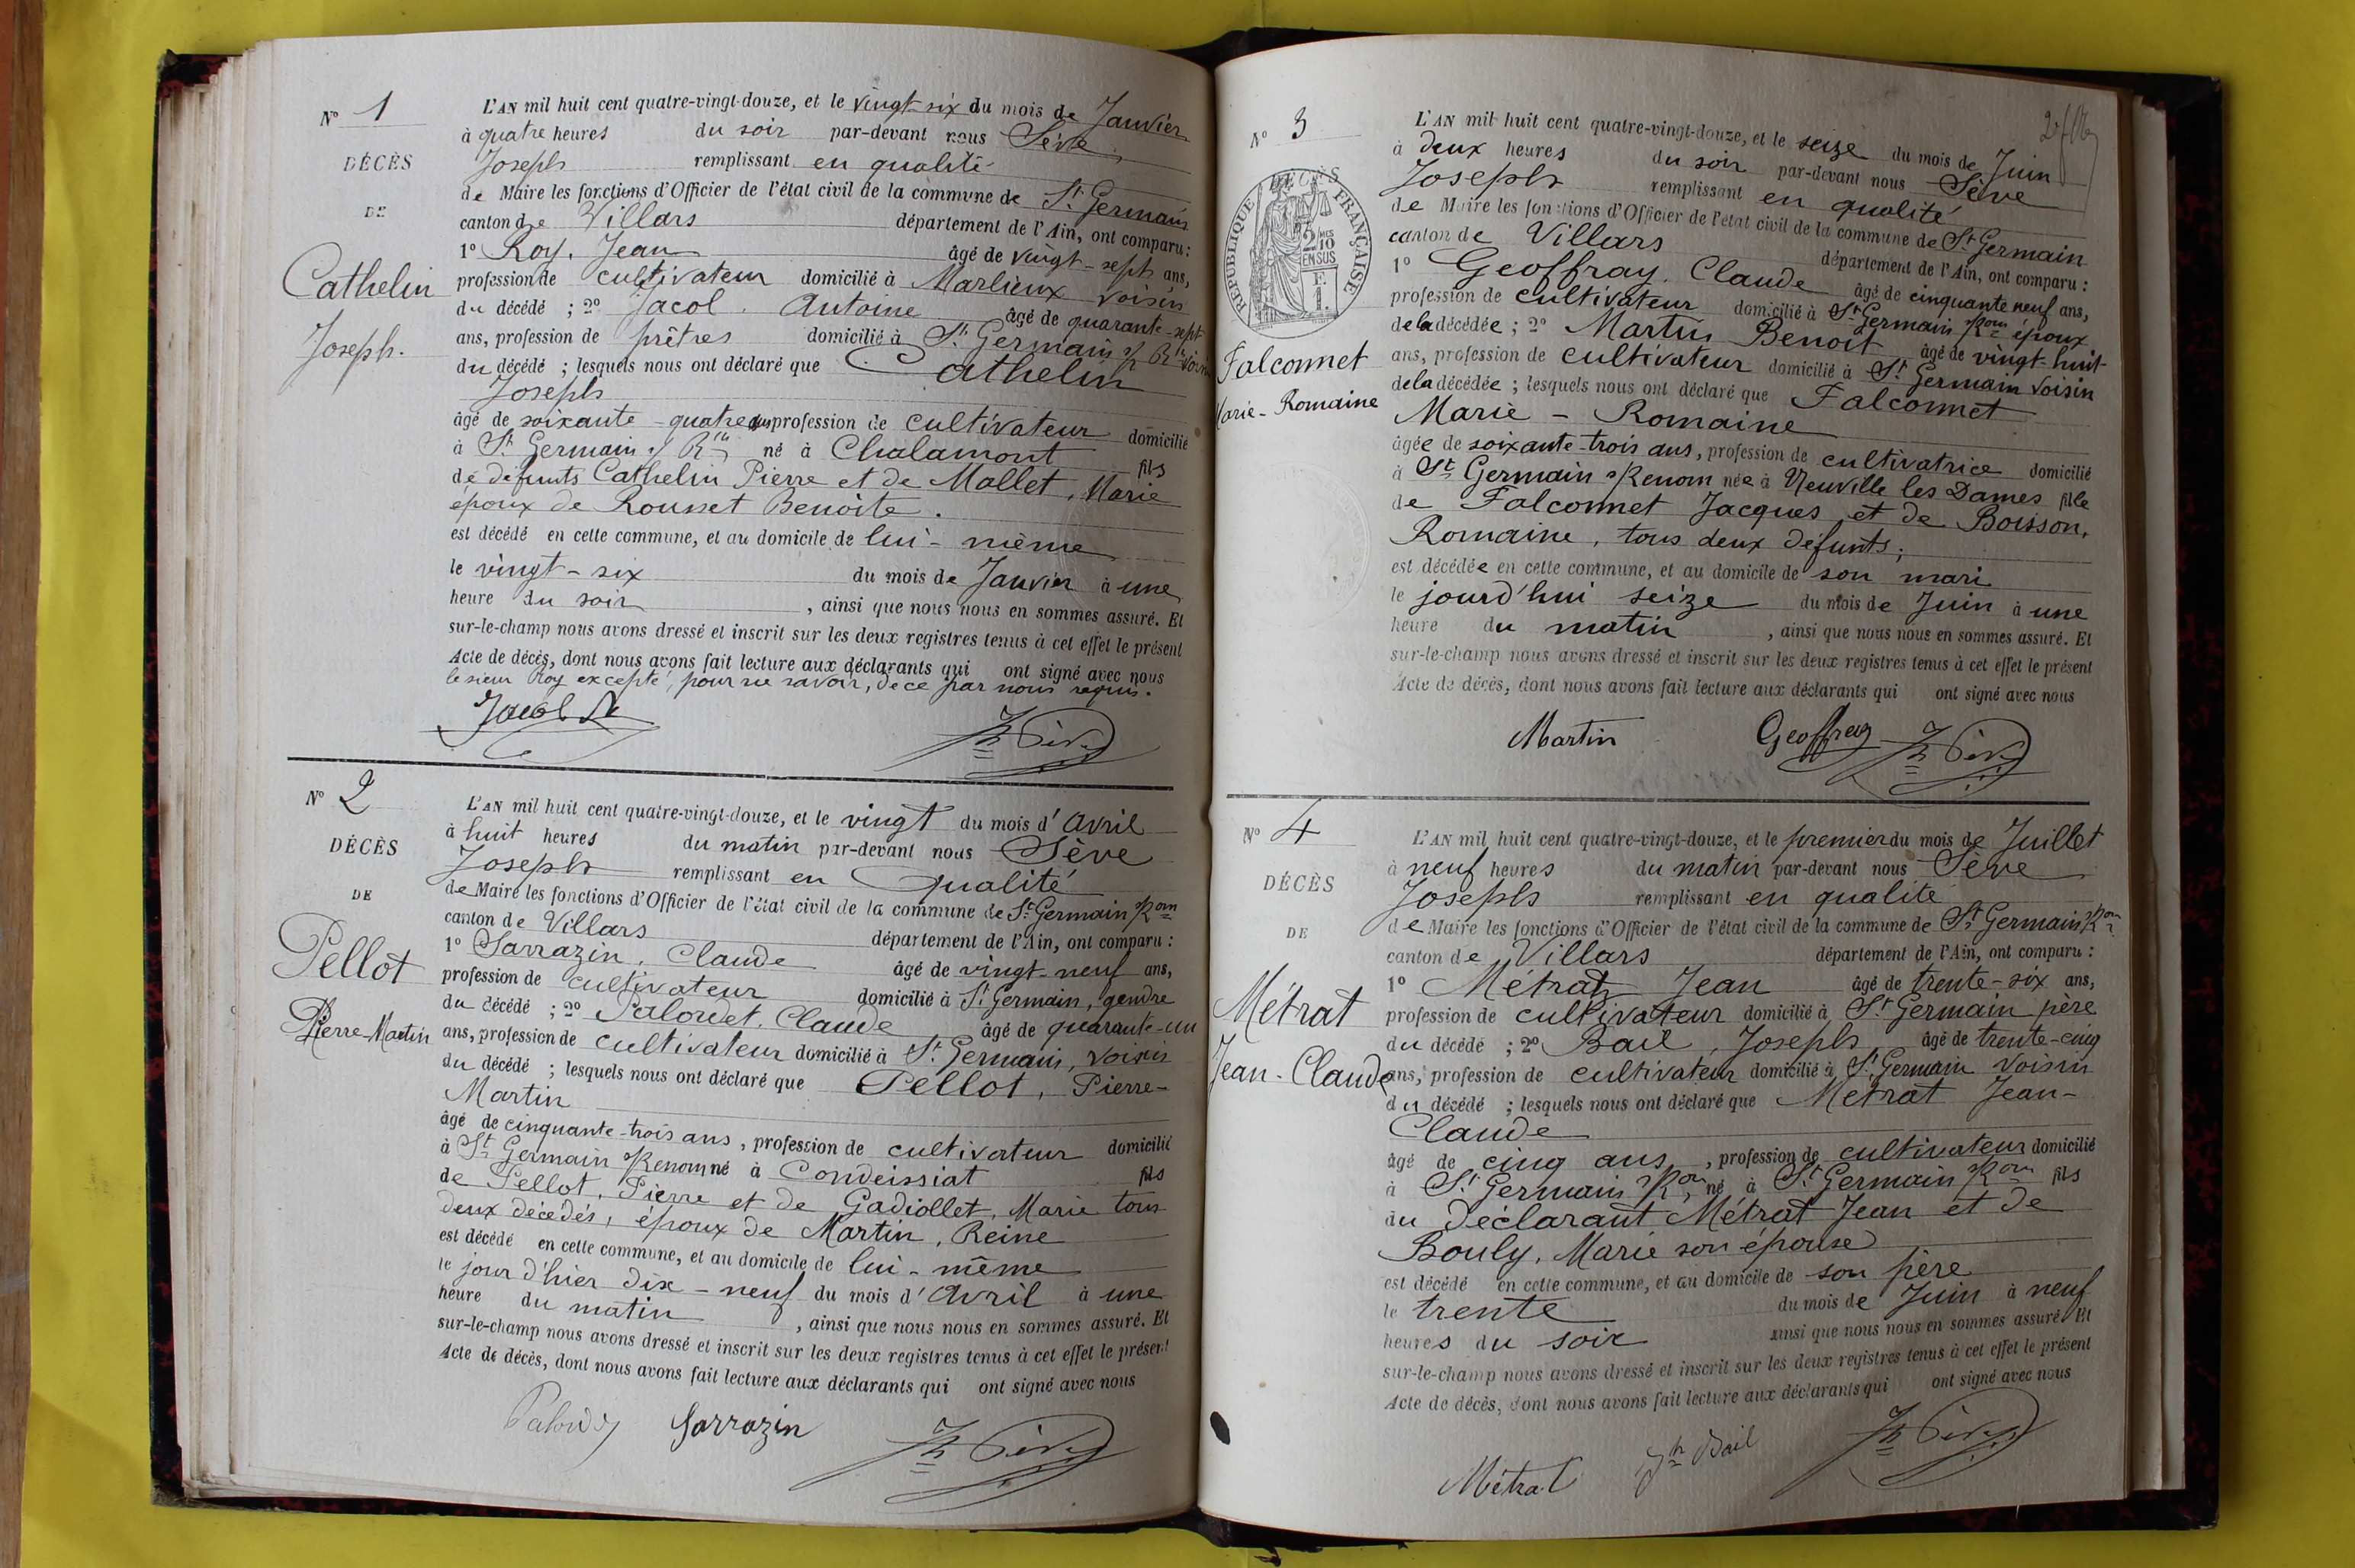 N° 1
DÉCÈS
DE
Cathelin
Joseph.
L'AN mil huit cent quatre-vingt-douze, et le vingt-six du mois de Janvier
à quatre heures du soir par-devant nous Sève
Joseph remplissant en qualité
de Maire les fonctions d'Officier de l'état civil de la commune de St Germain
canton de Villars département de l'Ain, ont comparu :
1° Roy, Jean âgé de vingt-sept ans,
profession de cultivateur domicilié à Marlieux voisin
du décédé ; 2° Jacol. Antoine âgé de quarante-sept
ans, profession de prêtres domicilié à St Germain s/ Rn voisin
du décédé ; lesquels nous ont déclaré que Cathelin
Joseph
âgé de soixante-quatre ans profession de cultivateur domicilié
à St Germain s/ Rn né à Chalamont fils
de défunts Cathelin Pierre et de Mallet, Marie
époux de Rousset Benoite.
est décédé en cette commune, et au domicile de lui-même
le vingt-six du mois de Janvier à une
heure du soir, ainsi que nous nous en sommes assuré. Et
sur-le-champ nous avons dressé et inscrit sur les deux registres tenus à cet effet le présent
Acte de décès, dont nous avons fait lecture aux déclarants qui ont signé avec nous
le sieur Roy excepté, pour ne savoir, de ce par nous requis.
Jacol Jh Sève
N° 2
DÉCÈS
DE
Pellot
Pierre-Martin
L'AN mil huit cent quatre-vingt-douze, et le vingt du mois d'Avril
à huit heures du matin par-devant nous Sève
Joseph remplissant en qualité
de Maire les fonctions d'Officier de l'état civil de la commune de St Germain s/ Rom
canton de Villars département de l'Ain, ont comparu :
1° Sarrazin, Claude âgé de vingt-neuf ans,
profession de cultivateur domicilié à St Germain, gendre
du décédé ; 2° Palouet, Claude âgé de quarante-un
ans, profession de cultivateur domicilié à St Germain, voisin
du décédé ; lesquels nous ont déclaré que Pellot, Pierre-
Martin
âgé de cinquante-trois ans, profession de cultivateur domicilié
à St Germain s/ Renom né à Condeissiat fils
de Pellot, Pierre et de Gadiollet, Marie tous
deux décédés, époux de Martin, Reine
est décédé en cette commune, et au domicile de lui-même
le jour d'hier dix-neuf du mois d'Avril à une
heure du matin, ainsi que nous nous en sommes assuré. Et
sur-le-champ nous avons dressé et inscrit sur les deux registres tenus à cet effet le présent
Acte de décès, dont nous avons fait lecture aux déclarants qui ont signé avec nous
Sarrazin Jh Sève
N° 3
RÉPUBLIQUE FRANÇAISE
2/10 MES EN SUS
F. 1
Falconnet
Marie-Romaine
L'AN mil huit cent quatre-vingt-douze, et le seize du mois de Juin
à deux heures du soir par-devant nous Sève
Joseph remplissant en qualité
de Maire les fonctions d'Officier de l'état civil de la commune de St Germain
canton de Villars département de l'Ain, ont comparu :
1° Geoffray, Claude âgé de cinquante neuf ans,
profession de cultivateur domicilié à St Germain s/ Rom époux
de la décédée ; 2° Martin Benoit âgé de vingt-huit
ans, profession de cultivateur domicilié à St Germain voisin
de la décédée ; lesquels nous ont déclaré que Falconnet
Marie-Romaine
âgée de soixante-trois ans, profession de cultivatrice domicilié
à St Germain s/ Renom née à Neuville les Dames fille
de Falconnet Jacques et de Boisson,
Romaine, tous deux défunts ;
est décédée en cette commune, et au domicile de son mari
le jourd'hui seize du mois de Juin à une
heure du matin, ainsi que nous nous en sommes assuré. Et
sur-le-champ nous avons dressé et inscrit sur les deux registres tenus à cet effet le présent
Acte de décès, dont nous avons fait lecture aux déclarants qui ont signé avec nous
Martin Geoffray Jh Sève
N° 4
DÉCÈS
DE
Métrat
Jean-Claude
L'AN mil huit cent quatre-vingt-douze, et le premier du mois de Juillet
à neuf heures du matin par-devant nous Sève
Joseph remplissant en qualité
de Maire les fonctions d'Officier de l'état civil de la commune de St Germain s/ Rom
canton de Villars département de l'Ain, ont comparu :
1° Métrat Jean âgé de trente-six ans,
profession de cultivateur domicilié à St Germain père
du décédé ; 2° Bail, Joseph âgé de trente-cinq
ans, profession de cultivateur domicilié à St Germain voisin
du décédé ; lesquels nous ont déclaré que Métrat Jean-
Claude
âgé de cinq ans, profession de cultivateur domicilié
à St Germain s/ Rom né à St Germain s/ Rom fils
du déclarant Métrat Jean et de
Bouly, Marie son épouse
est décédé en cette commune, et au domicile de son père
le trente du mois de Juin à neuf
heures du soir ainsi que nous nous en sommes assuré. Et
sur-le-champ nous avons dressé et inscrit sur les deux registres tenus à cet effet le présent
Acte de décès, dont nous avons fait lecture aux déclarants qui ont signé avec nous
Métrat Jh Bail Jh Sève